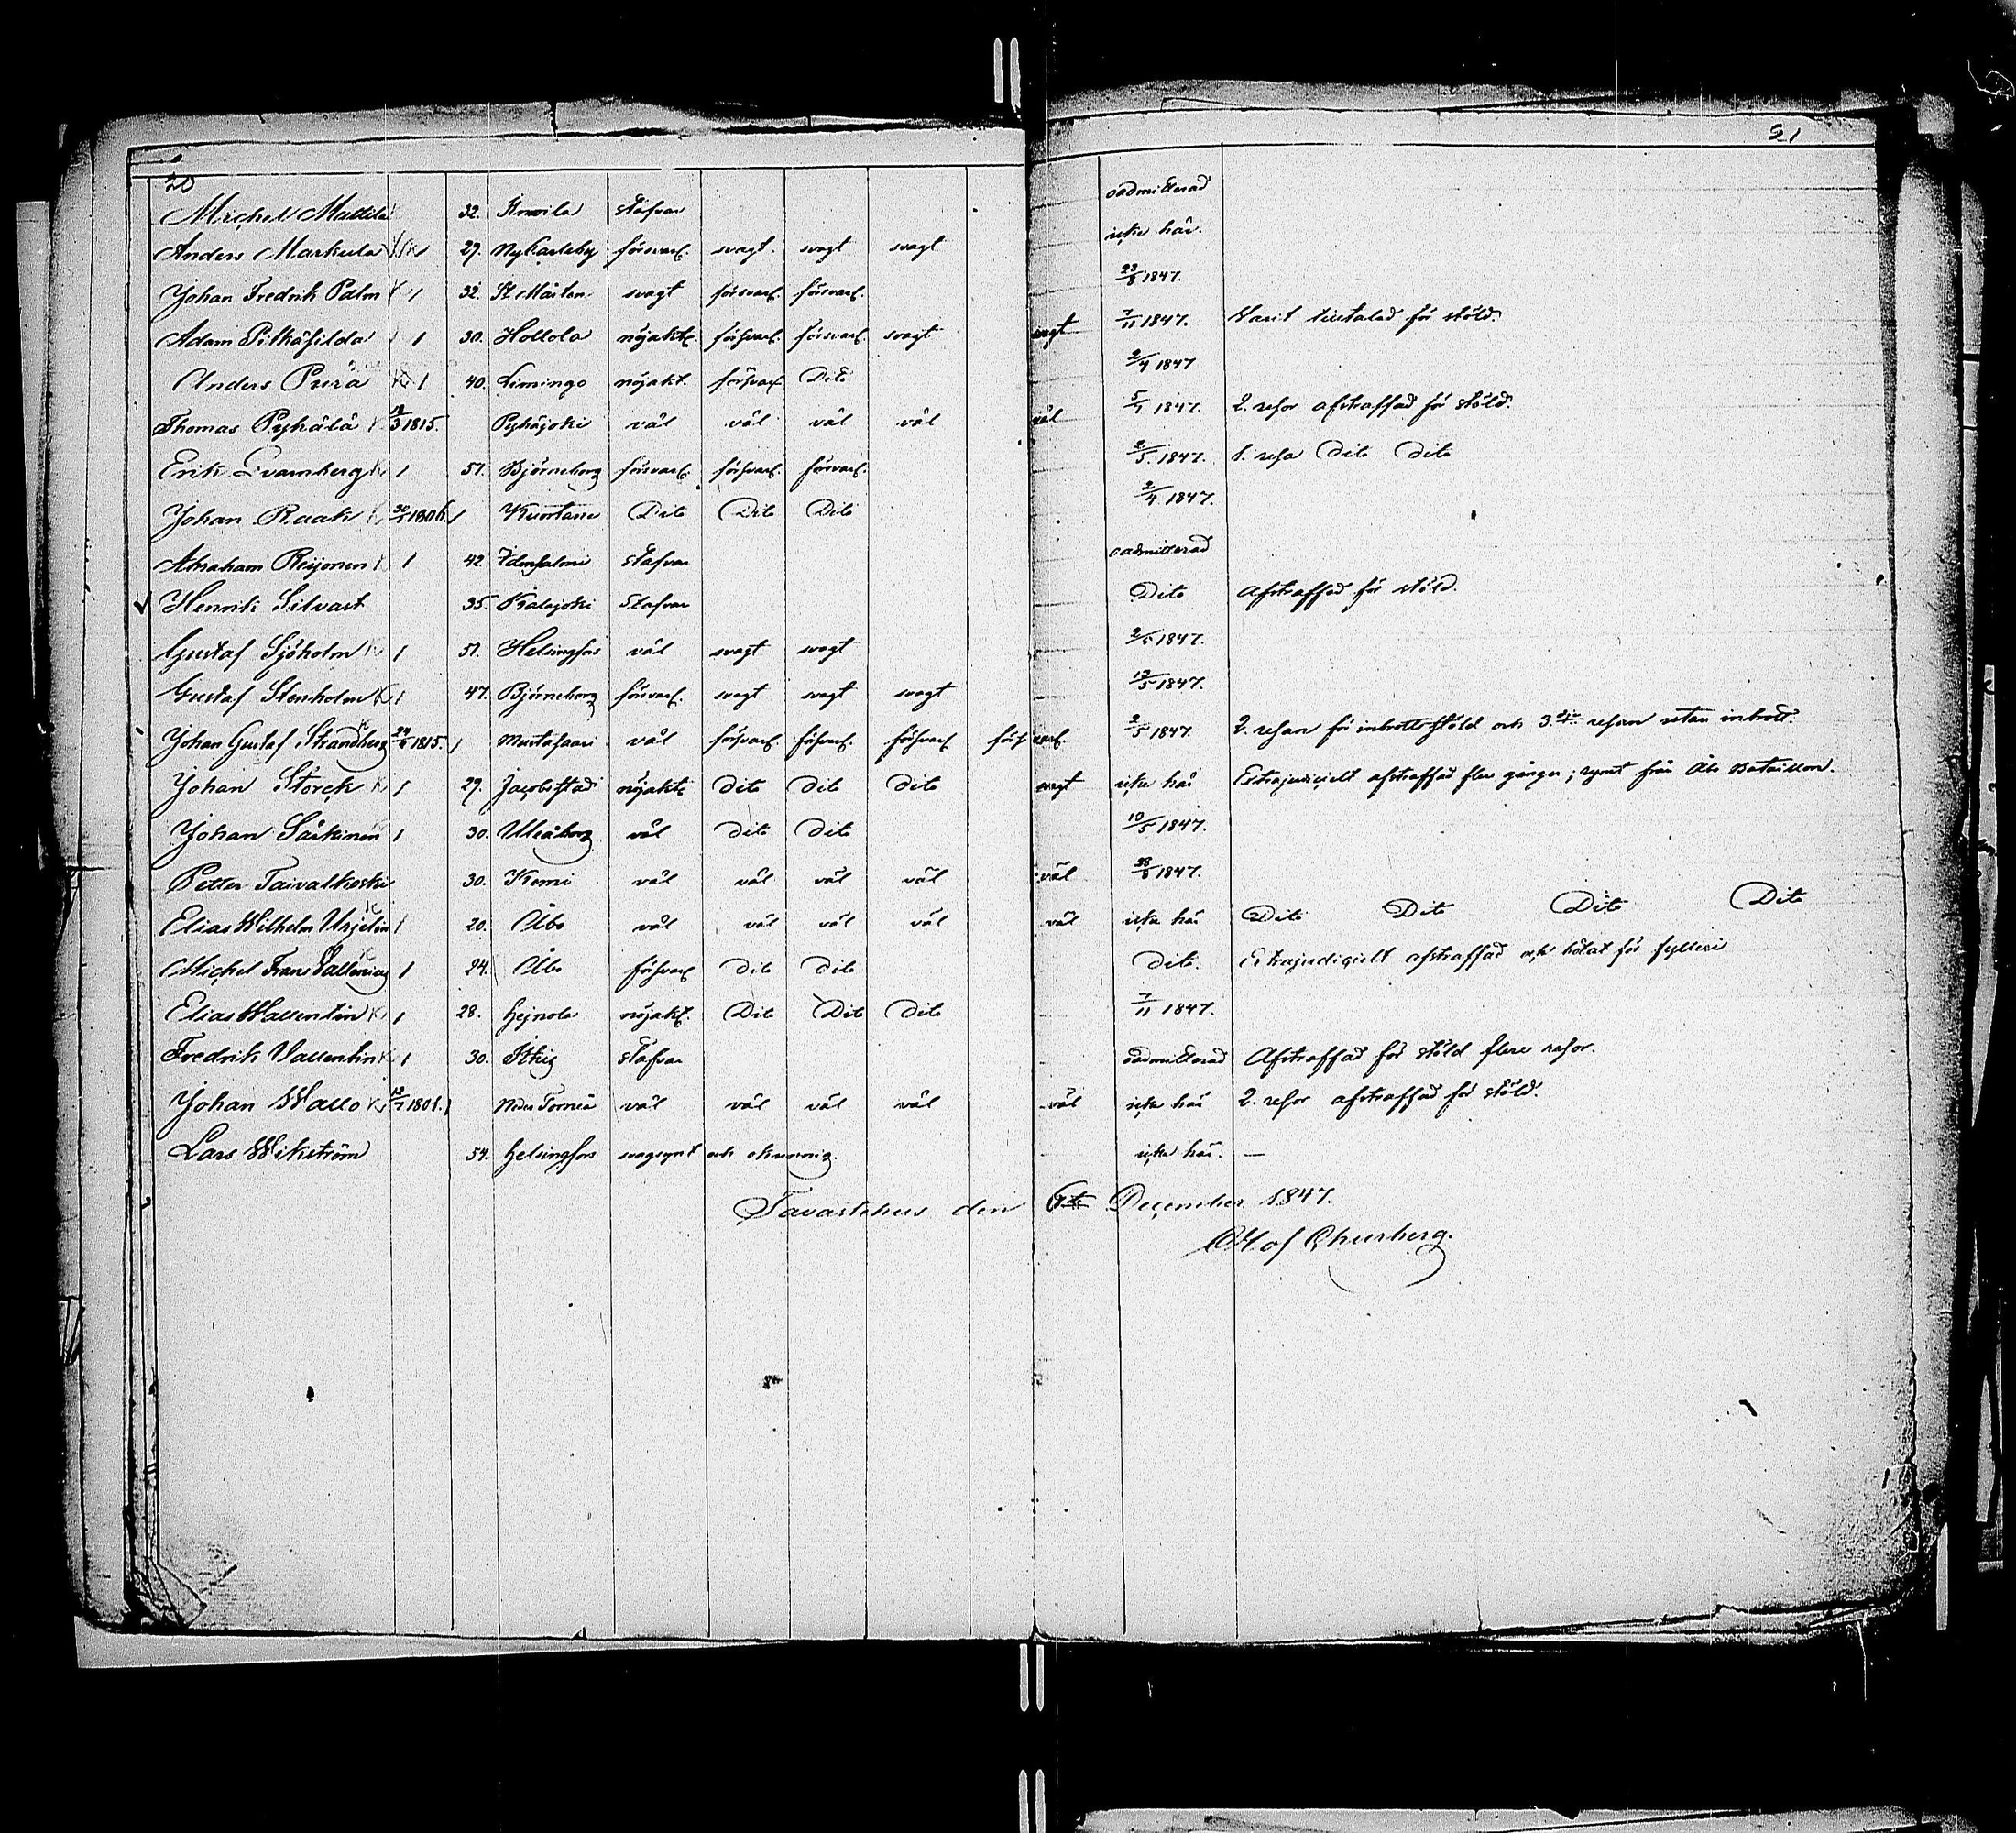 20 21
Michel Mattila 32. stafvar oadmitterad
Anders Markula 29. NyCarleby försvarl. svagt. svagt svagt icke här.
Johan Fredrik Palm 1 32. St Mårten svagt försvarl. försvarl. 23/8 1847.
Adam Pitkäsilda 1 30. Hollola nöjaktl. försvarl. försvarl. svagt svagt 7/11 1847. Varit tilltalad för stöld.
Anders Purä K 1 40. Limingo nöjakt. försvarl. Dito 2/4 1847
Thomas Pyhälä K 1815. Pyhäjoki väl väl väl väl väl 5/1 1847. 2. resor afstraffad för stöld.
Erik Qvarnberg K 1 51. Björneborg försvarl. försvarl. försvarl. 2/5 1847. 1. resa Dito Dito
Johan Raak K 1806. 1 Kuortane Dito Dito Dito 2/4 1847.
Abraham Reijonen K 1 42 Idensalmi stafvar oadmitterad
Henrik Silvast 35. Kalajoki Stafvar Dito Afstraffad för stöld.
Gustaf Sjöholm K 1 51. Helsingfors väl svagt svagt 1847.
Gustaf Stenholm K 1 47. Björneborg försvarl. svagt svagt svagt 12/5 1847.
Johan Gustaf Strandberg K 1815. 1 Mustasaari väl försvarl. försvarl. försvarl försvarl. 2/5 1847. 2. resan för inbrottsstöld och 3. resan utan inbrott.
Johan Storck K 1 29. Jacobsstad nöjaktl Dito Dito Dito svagt icke här Extrajudicielt afstraffad flere gånger; rymt från Åbo Bataillon.
Johan Särkinen 1 30. Uleåborg väl Dito Dito 10/5 1847.
Petter Taivalkoski 30. Kemi väl väl väl väl väl 28/8 1847.
Elias Wilhelm K 1 20. Åbo väl väl väl väl väl icke här Dito Dito Dito Dito
Michel Frans K 1 24. Åbo försvarl Dito Dito Dito. Extrajudicielt afstraffad och bötat för fylleri
Elias Wallentin K 1 28. Hejnola nöjakt. Dito Dito Dito 7/11 1847.
Fredrik Vallentin K 1 30. Itkis stafvar oadmitterad Afstraffad för stöld flere resor.
Johan Wallo K 1801. 1 Neder Torneå väl väl väl väl väl icke här 2. resor afstraffad för stöld.
Lars Wikström 54. Helsingfors svagsynt och okunnig. icke här. —
Tavastehus den 6te December 1847.
Churberg.